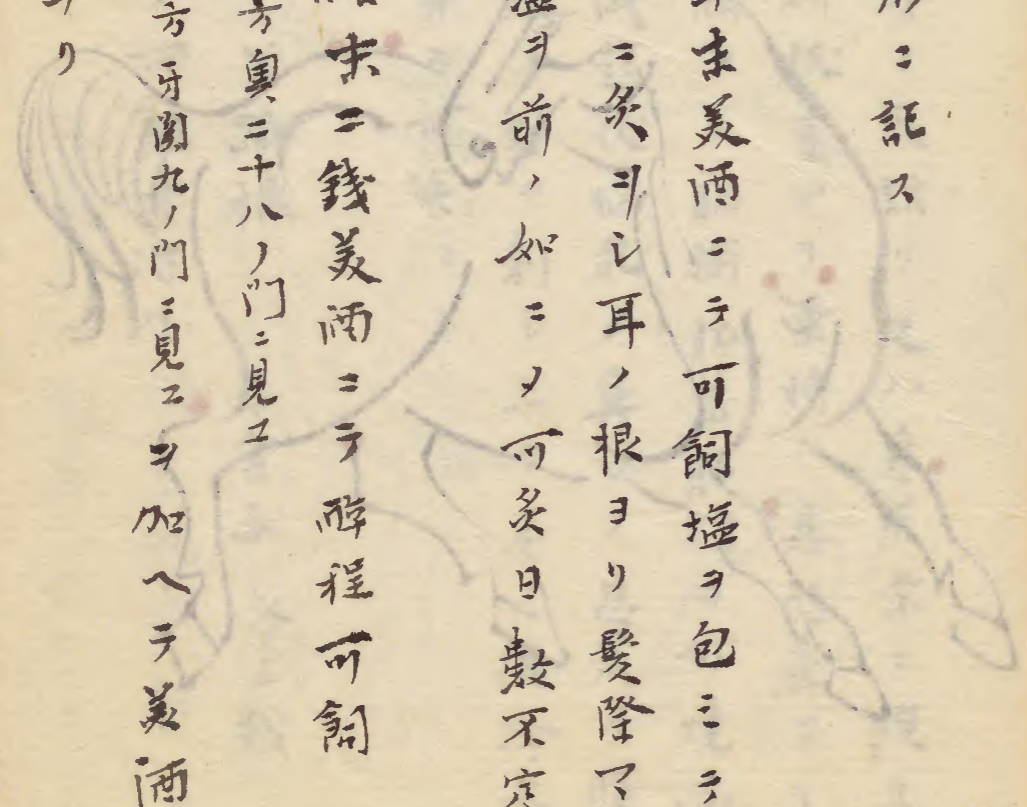 ニ記ス
末美酒ニテ可飼塩ヲ包ミテ
ニ炙リシ耳ノ根ヨリ髪際マ
塩ヲ前ノ如ニメ可炙日数不定
末二銭美酒ニテ酔程可飼
方奥二十八ノ門ニ見ユ
方牙関九ノ門ニ見エヲ加ヘテ美酒
リ